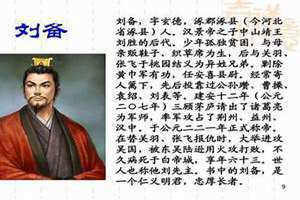 刘备
刘备,字玄德,涿郡涿县(今河北
省涿县)人。汉景帝之子中山靖王
刘胜的后代。少年孤独贫困,与母
亲贩鞋子、织草席为生,后与关羽、
张飞于桃园结义为异姓兄弟。剿除
黄巾军有功,任安喜县尉。经常寄
人篱下,先后投靠过公孙瓒、曹操、
袁绍、刘表等。建安十二年(公元
二〇七年)三顾茅庐请出了诸葛亮
为军师,率军攻占了荆州、益州、
汉中。于公元二二一年正式称帝。
在替关羽、张飞报仇时,大举进攻
吴国,被东吴陆逊用火攻打败,不
久病死于白帝城,享年六十三。世
人也称他刘先主。书中的刘备,是
一个仁义明君,忠厚长者。
9